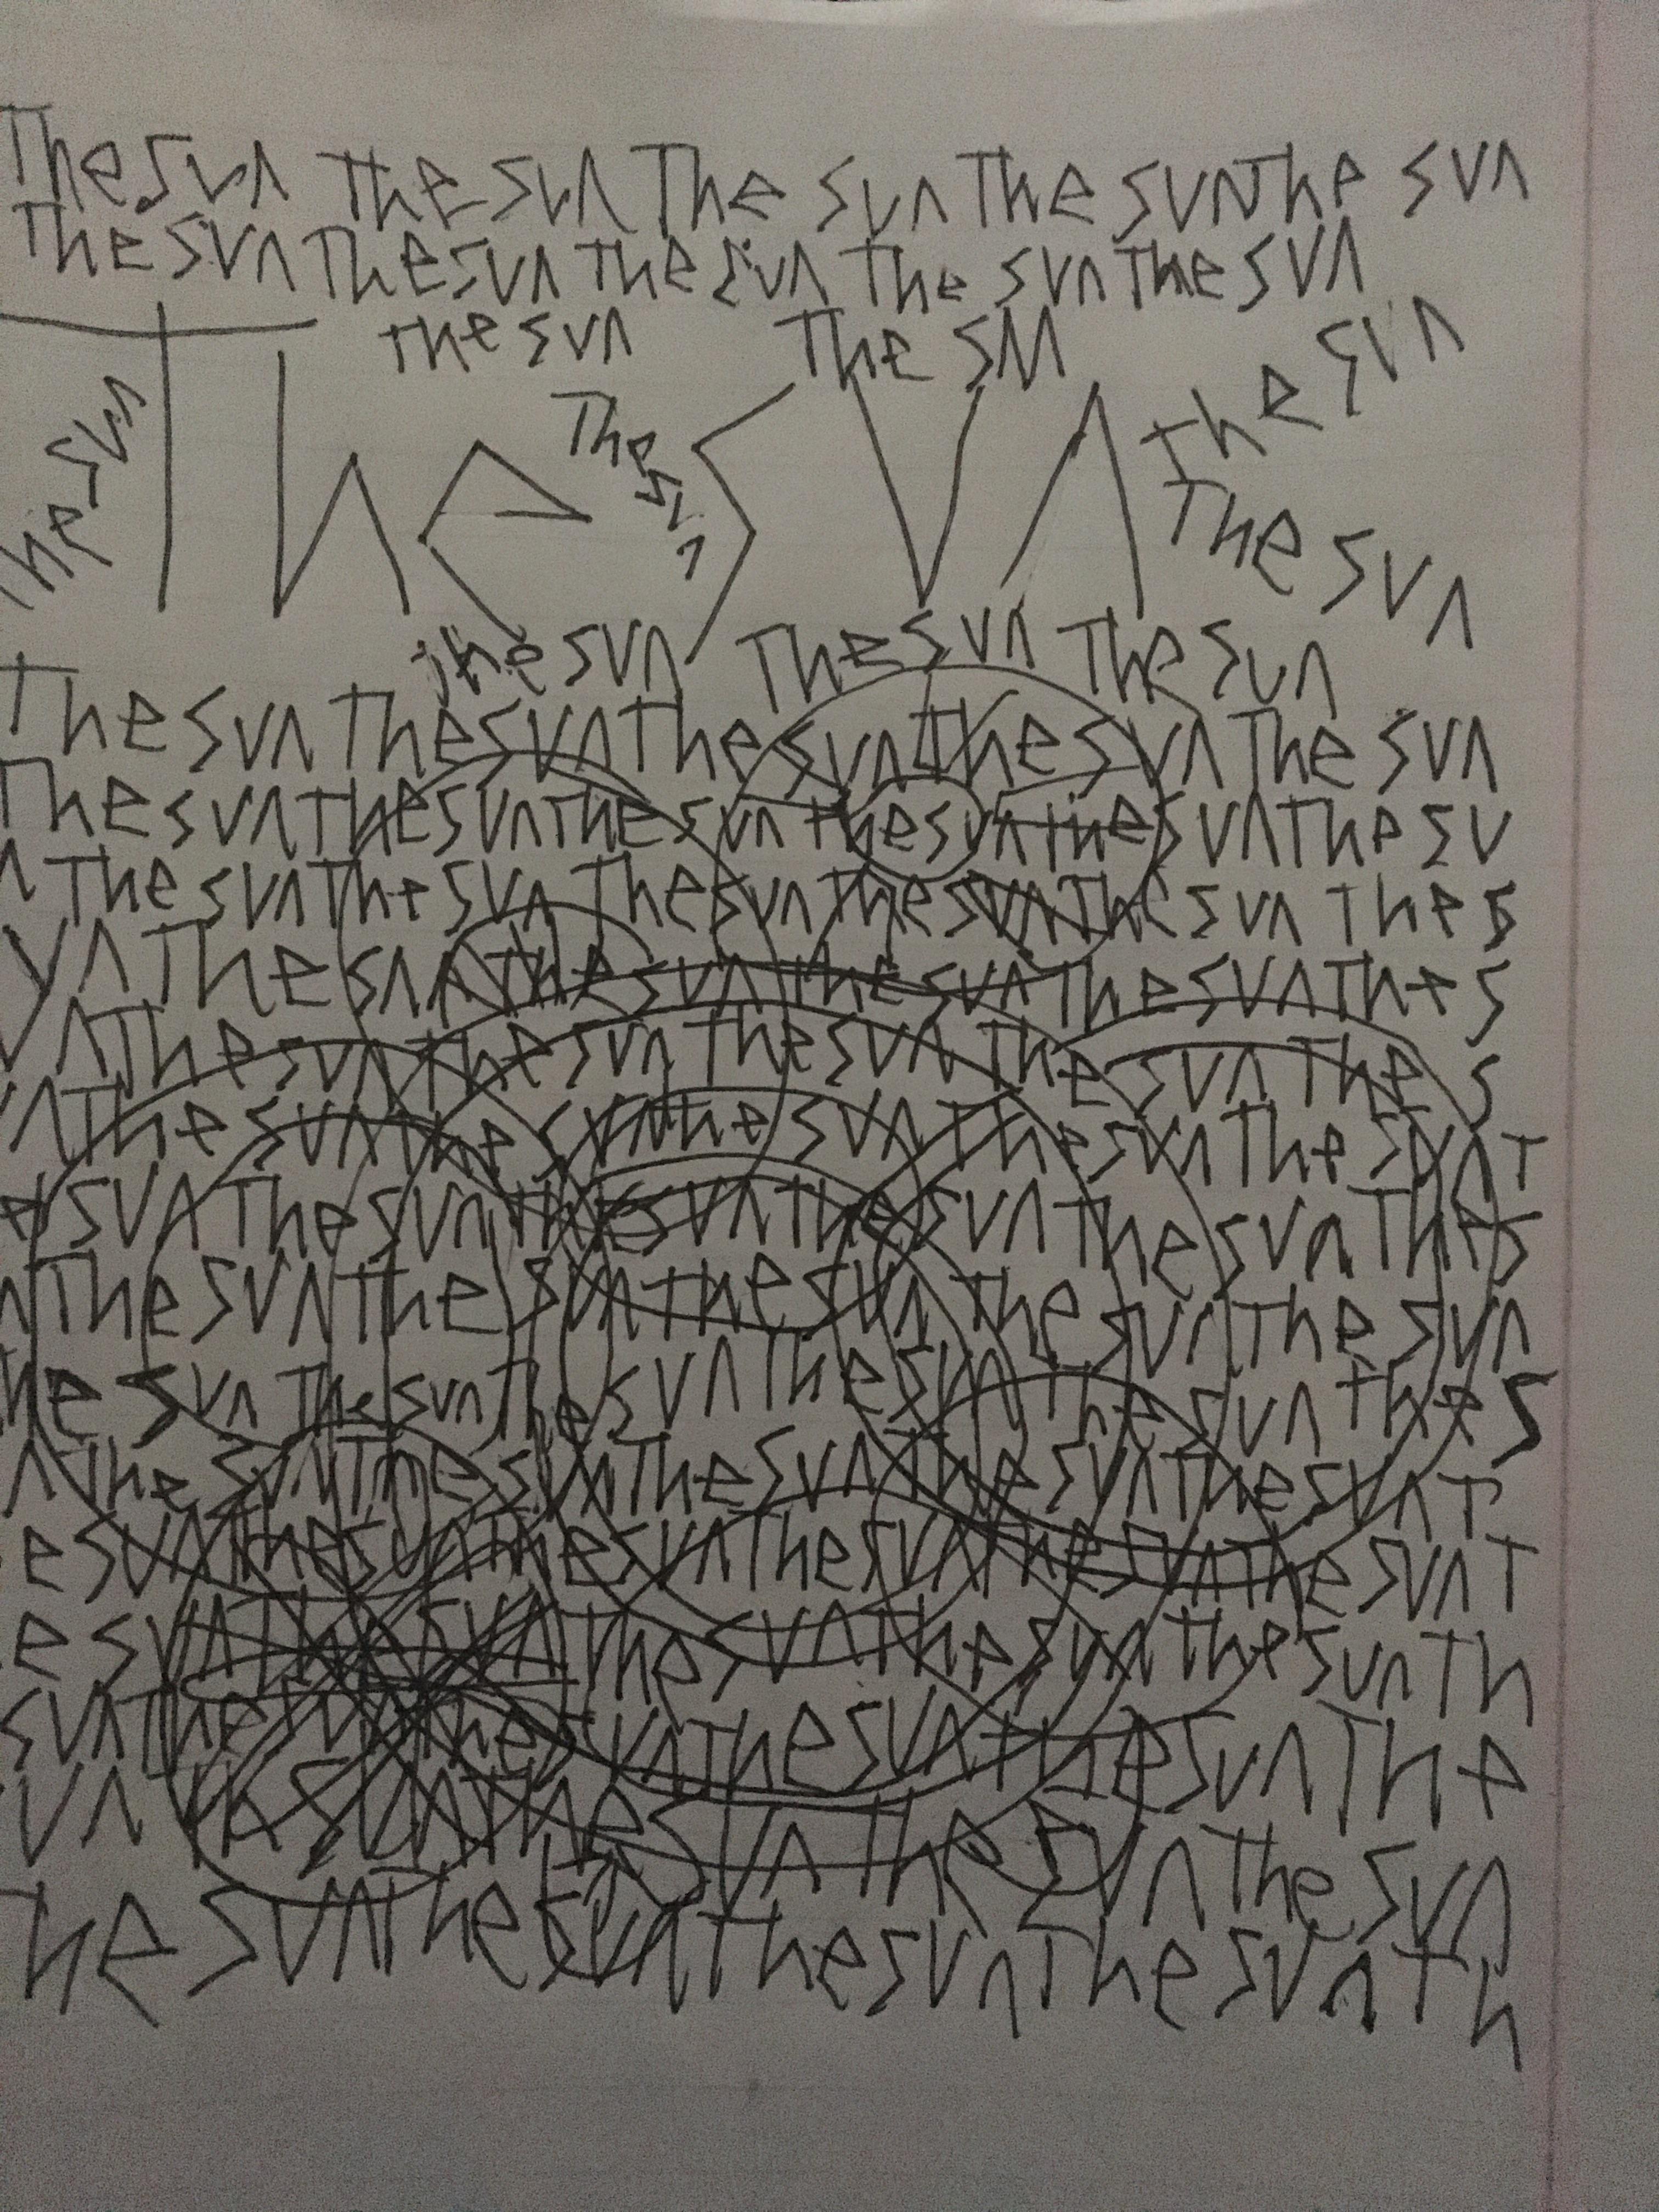 The sun The sun The sun The sun The sun
The sun The sun The sun The sun The sun
the sun The sun The sun
he sun The sun The sun
The sun
The sun The sun The sun
The sun The sun The sun the sun The sun
The sun The sun The sun the sun the sun The su
n The sun The sun The sun The sun The sun The s
un The sun The sun the sun The sun The s
un The sun the sun The sun The sun The s
un The sun the sun the sun The sun The sun T
e sun The sun the sun the sun The sun The s
n The sun The sun the sun The sun The sun
he sun The sun The sun The sun The sun the s
n The sun The sun The sun the sun The sun T
e sun The sun The sun The sun The sun The sun T
e sun The sun The sun The sun The sun Th
sun The sun The sun The sun The sun The
un The sun The sun The sun The sun
The sun The sun The sun The sun Th